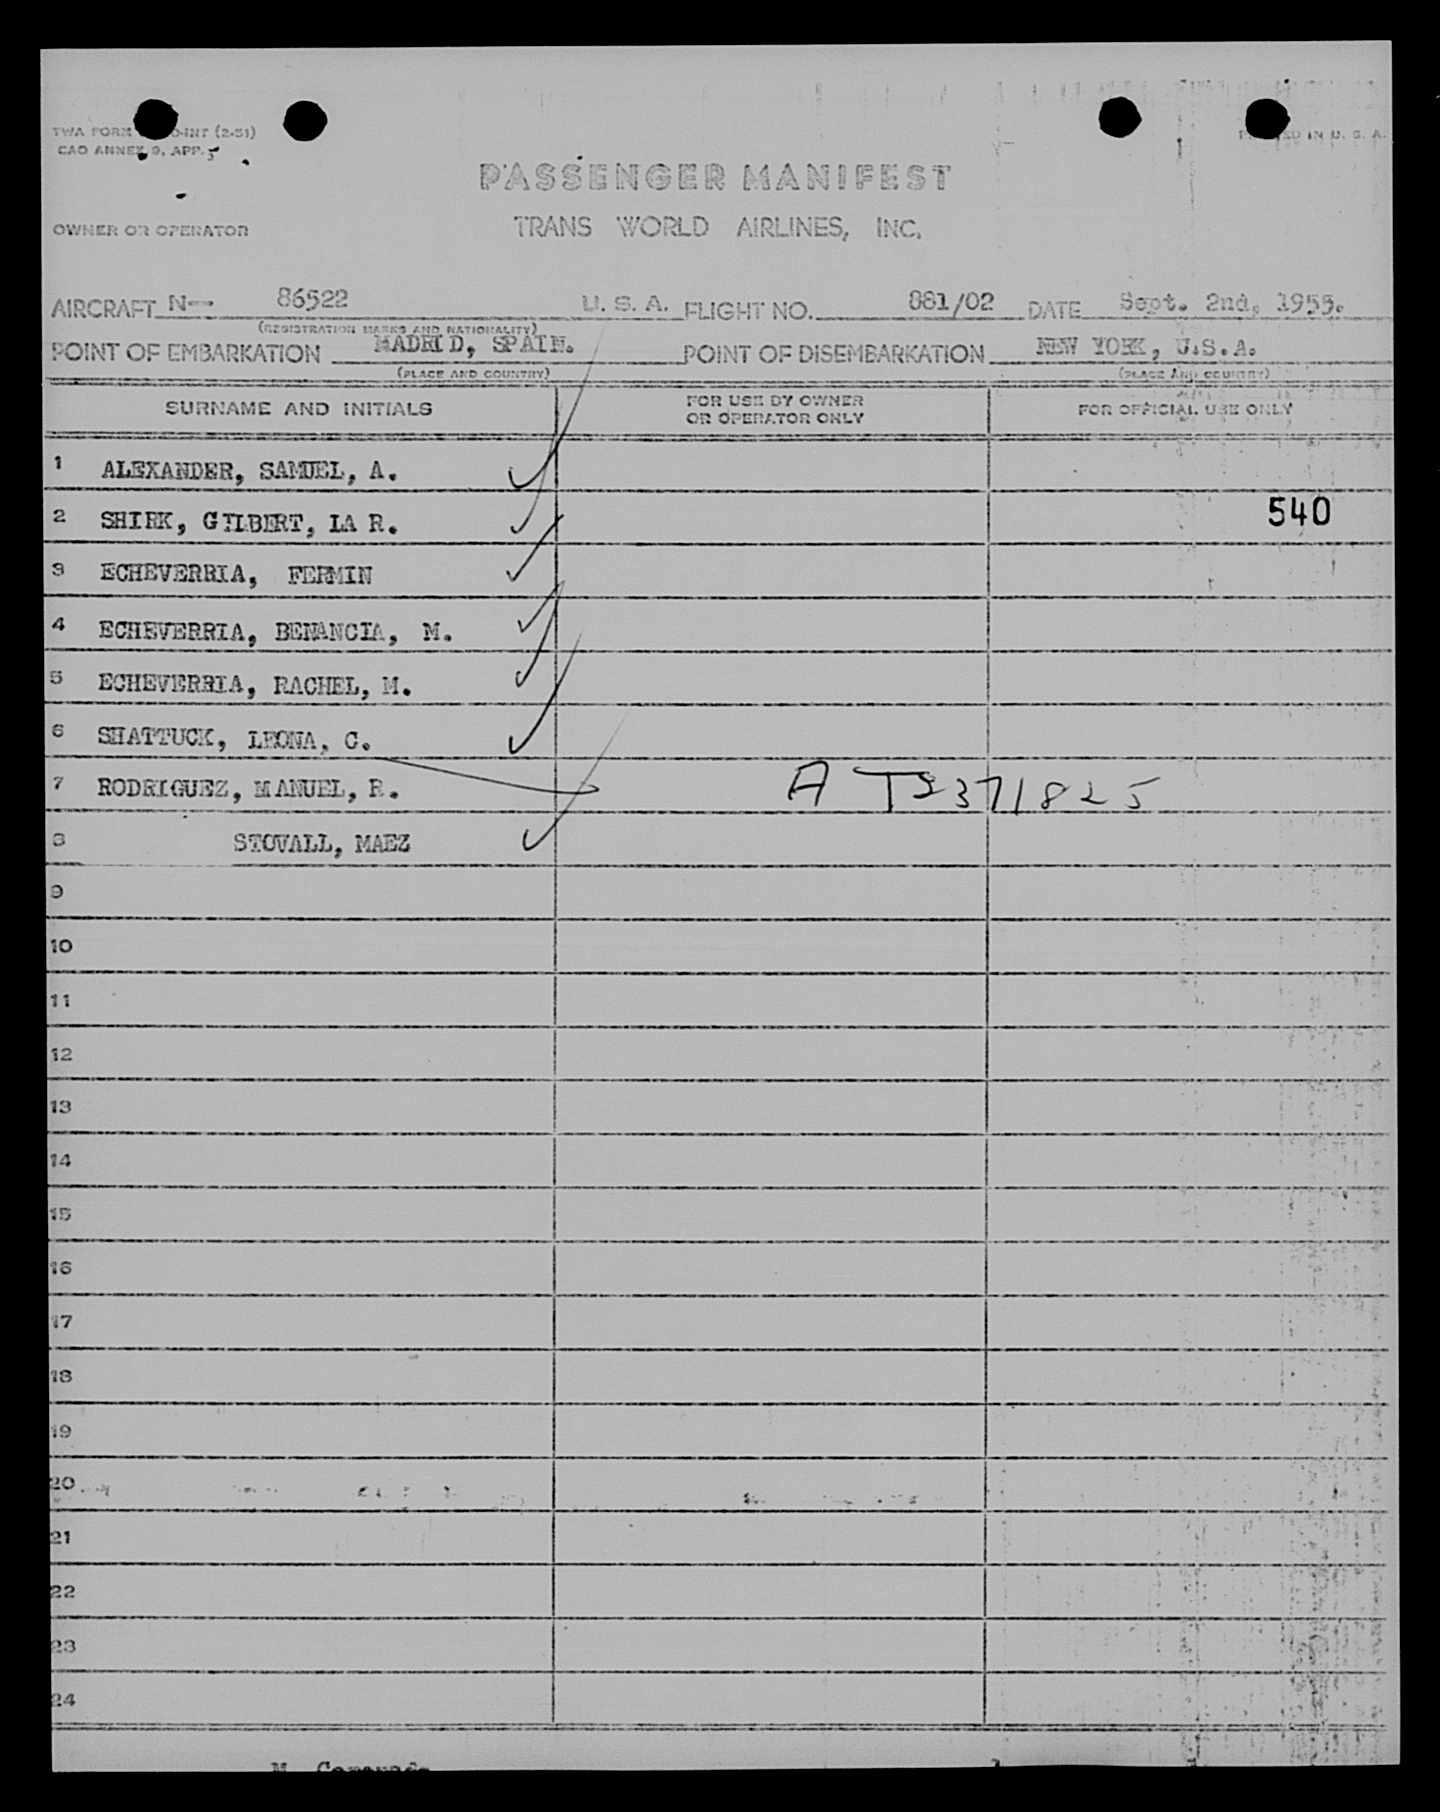 TWA FORM INT (2-51)
CAO ANNEX 9, APP. 5
PASSENGER MANIFEST
OWNER OR OPERATOR
TRANS WORLD AIRLINES, INC.
AIRCRAFT N-- 86522 U. S. A. FLIGHT NO. 881/02 DATE Sept. 2nd, 1955.
(REGISTRATION MARKS AND NATIONALITY)
POINT OF EMBARKATION MADRID, SPAIN. POINT OF DISEMBARKATION NEW YORK, U.S.A.
(PLACE AND COUNTRY) (PLACE AND COUNTRY)
SURNAME AND INITIALS FOR USE BY OWNER OR OPERATOR ONLY FOR OFFICIAL USE ONLY
1 ALEXANDER, SAMUEL, A.
2 SHIRK, GILBERT, LA R. 540
3 ECHEVERRIA, FERMIN
4 ECHEVERRIA, BENANCIA, M.
5 ECHEVERRIA, RACHEL, M.
6 SHATTUCK, LEONA, C.
7 RODRIGUEZ, MANUEL, R. A T2371825
8 STOVALL, MAEZ
9
10
11
12
13
14
15
16
17
18
19
20
21
22
23
24